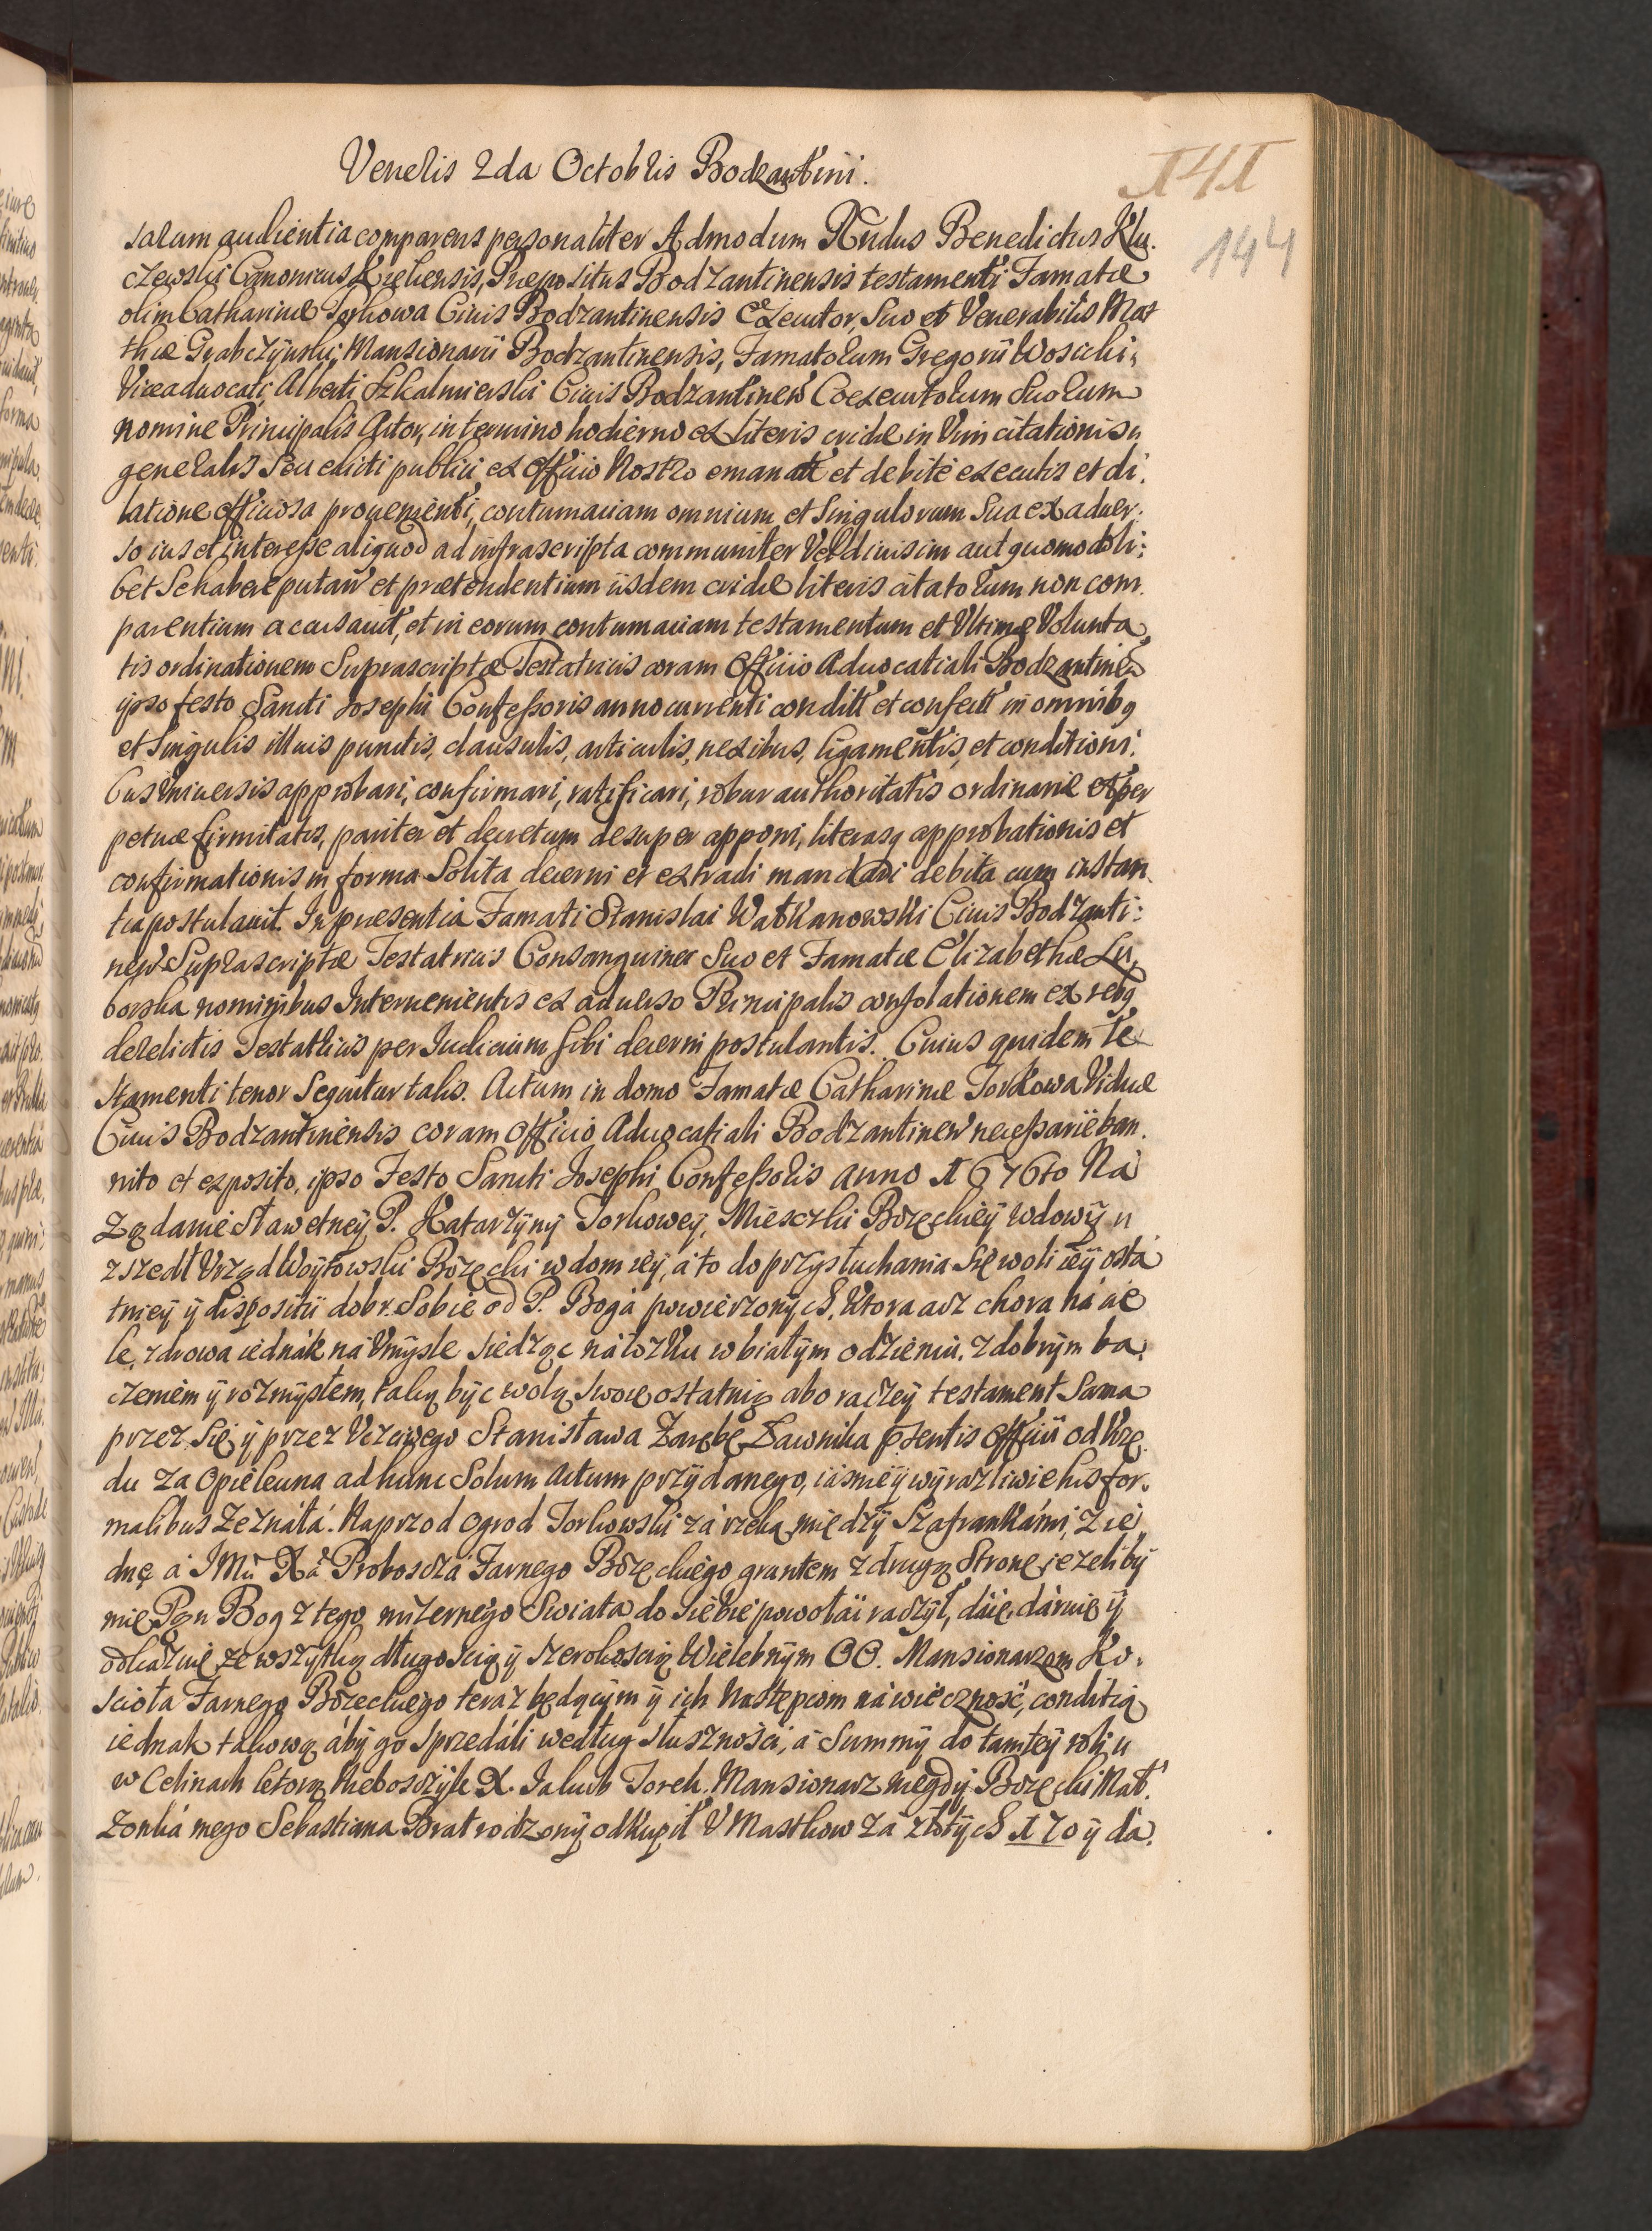 Veneris 2da Octobris Bodzantini.
141
144
sarum audientia comparens personaliter Admodum Rndus Benedictus Klu.
czewski Canonicus Kielcensis, Præpositus Bodzantinensis testamenti Famatæ
olim Catharinæ Torkowa Civis Bodzantinensis Executor, Suo et Venerabilis Mat
thiæ Grabczÿnski, Mansionarii Bodzantinensis, Famatorum Gregorii Wosicki,
Viceaduocati, Alberti Szkalmierski Ciuis Bodzantinen Coexecutorum Suorum
nomine Principalis Actor, in termino hodierno ex literis cridæ in Vim citationis
generalis Seu edicti publici, ex Officio Nostro emanatt et debitè executis et di,
latione officiosa prouenienti, contumaciam omnium et Singulorum Sua ex aduer,
so ius et interesse aliquod ad infrascripta communiter Vel diuisim aut quomodoli:
bet Se habere putan et prætendentium iisdem cridæ literis citatorum non com.
parentium accusauit, et in eorum contumaciam testamentum et Vltimæ Volunta,
tis ordinationem Suprascriptæ Testatricis coram Officio Aduocatiali Bodzantinen
ipso festo Sancti Josephi Confessoris anno currenti conditt et confectt in omnibq
et Singulis illius punctis, clausulis, articulis, nexibus, ligamentis, et conditioni,
bus Vniuersis approbari, confirmari, ratificari, robur authoritatis ordinariæ et per
petuæ firmitatis, pariter et decretum desuper apponi, literasq approbationis et
confirmationis in forma Solita decerni et extradi mandari debita cum instan
tia postulauit. In præsentia Famati Stanislai Watkanowski Ciuis Bodzanti:
nen Suprascriptæ Testatricis Consanguinei Suo et Famatæ Elizabethæ Lu,
borska nominibus Interuenientis ex aduerso Principalis consolationem ex rebq
derelictis Testatricis per Iudicium Sibi decerni postulantis. Cuius quidem te
stamenti tenor Sequitur talis. Actum in domo Famatæ Catharinæ Torkowa Viduæ
Ciuis Bodzantinensis coram Officio Aduocatiali Bodzantinen necessariè ban.
nito et exposito, ipso Festo Sancti Josephi Confessoris Anno 1676to Na
Ządanie Sławetneÿ P. Katarzÿnÿ Torkoweÿ, Miesczki Bozęckieÿ wdowÿ
zszedł Vrząd Woÿtowski Bozęcki w dom ieÿ, a to do przysłuchania Się woli ieÿ osta
tnieÿ ÿ dispositii dobr Sobie od P. Boga powierzonÿch, Ktora acz chora na cie
le, zdrowa iednák na Vmÿsle siedząc na łozku w białÿm odzieniu, z dobrÿm ba,
czeniem ÿ rozmÿsłem, taką bÿc wolą Swoię ostatnią abo raczeÿ testament Sama
przez Się ÿ przez Vczciwego Stanisława Zarębę Ławnika pręsentis Officii od Vrzę
du Za Opiekuna ad hunc Solum Actum przÿdanego, iásnie ÿ wÿrazliwie his for.
malibus Zeznáłá. Naprzod ogrod Torkowski zá rzeką międzÿ Szafrankámi, z ie,
dnę á JMci Xa Proboscza Farnego Bozęckiego gruntem z drugą Stronę iezelibÿ
mię Pąn Bog z tego mizernego Swiata do Siebie powołać raczÿł, dáię, dáruię ÿ
odkazuię ze wszÿtką długoscią ÿ szerokoscią Wielebnÿm OO. Mansionarzom Ko,
scioła Farnego Bozeckiego teraz będącÿm ÿ ich Następcom ná wiecznosć, conditią
iednak takową ábÿ go Sprzedáli według słusznosci, á Summÿ do tamteÿ roli
w Celinach ktorą Nieboszczÿk X. Jakub Torek, Mansionarz niegdÿ Bozęcki Mał,
zonká mego Sebastiana Brat rodzonÿ odkupił V Mastkow za złotÿch 170 ÿ dá,